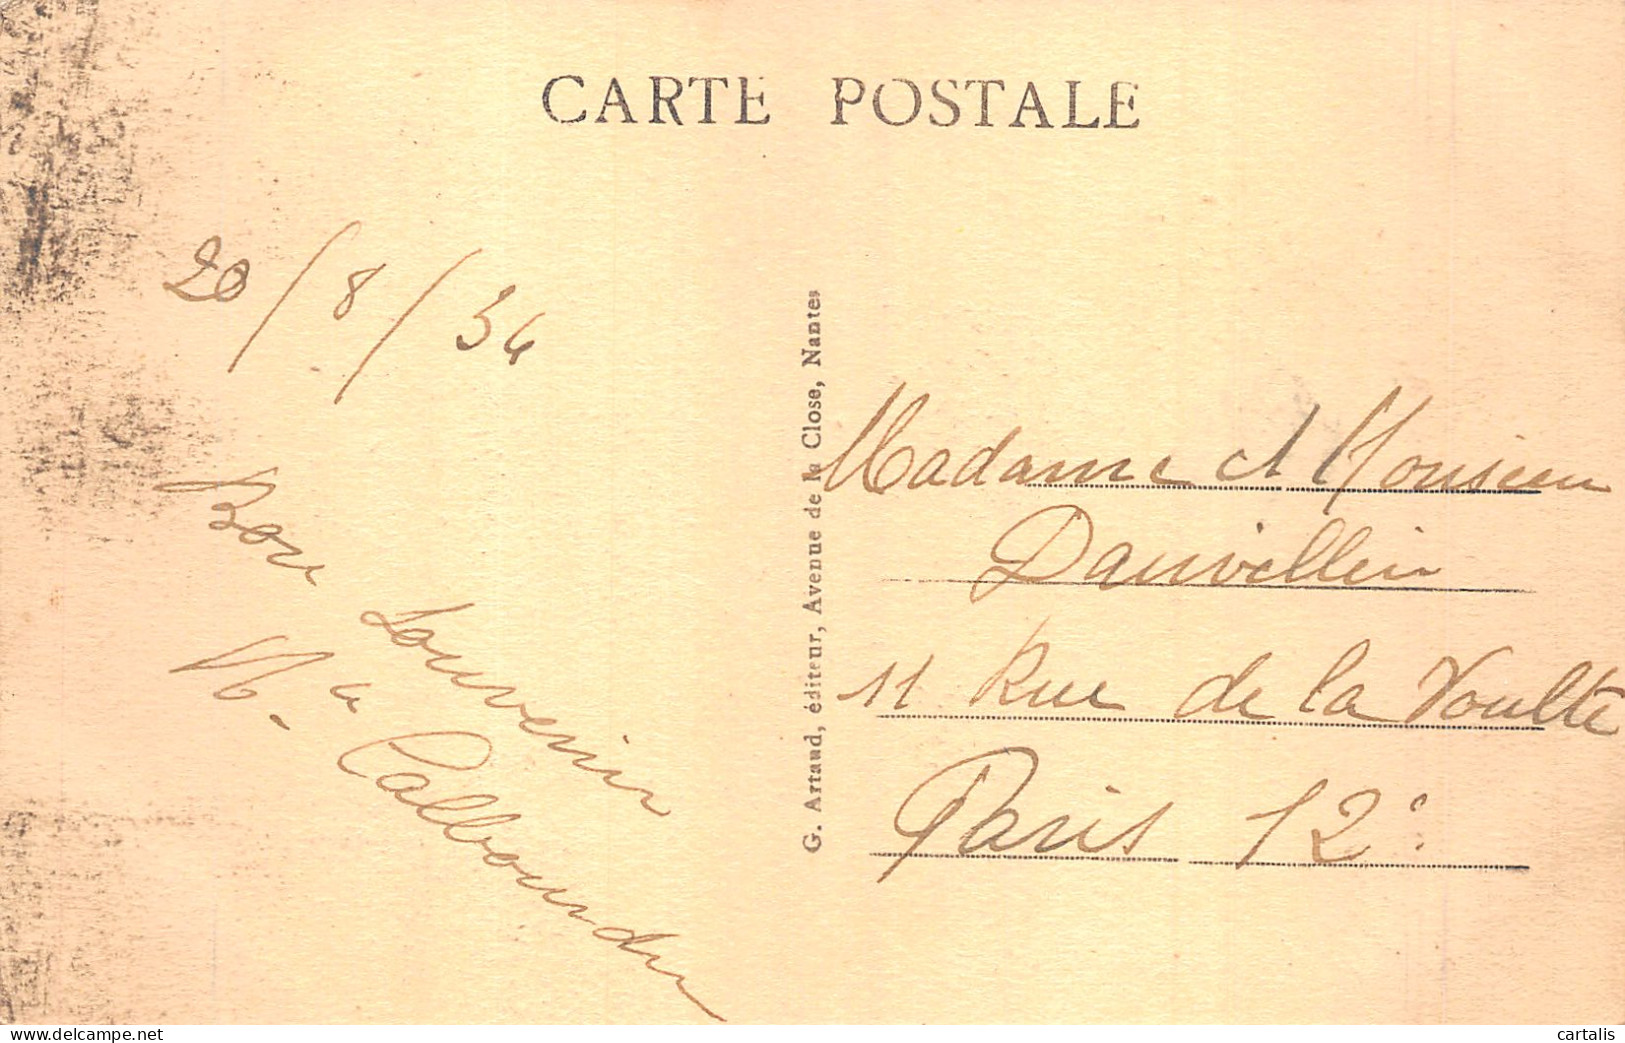 CARTE POSTALE
20/8/34
Bon Souvenir
G. Artaud, éditeur, Avenue de la Close, Nantes
Madame et Monsieur
Dauvillier
11 Rue de la Voulte
Paris 12e
delcampe.net
cartalis